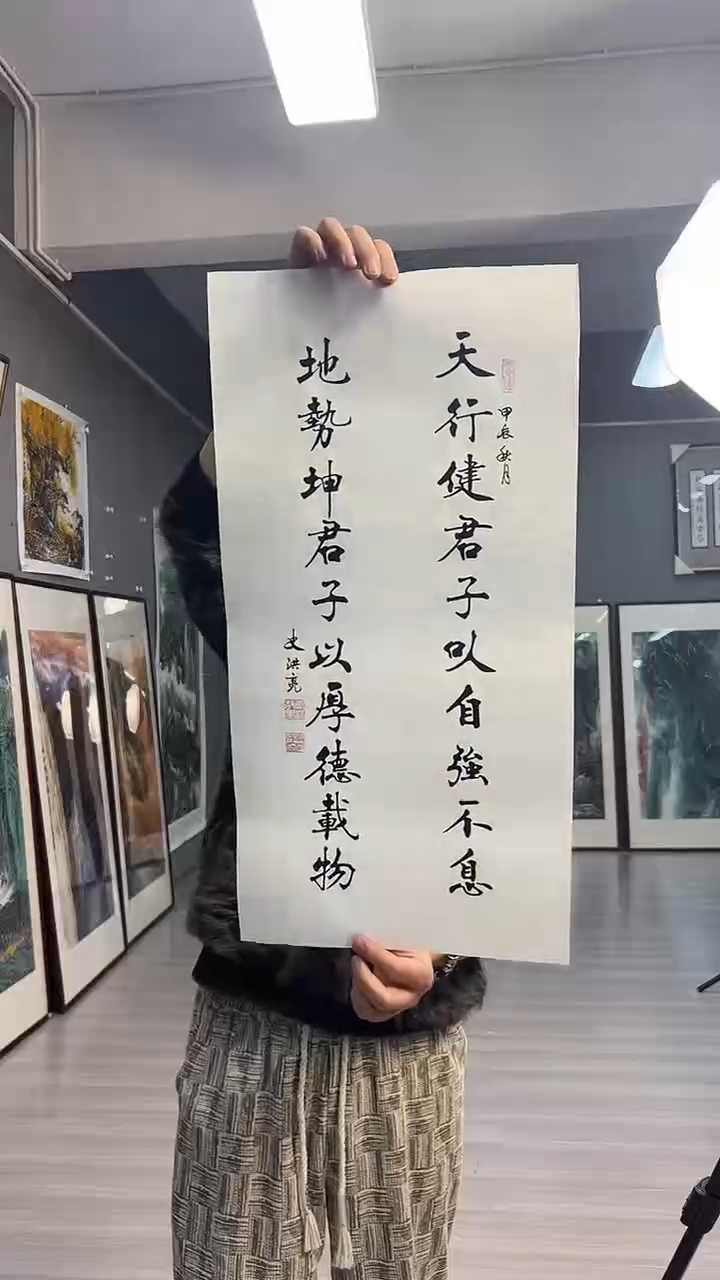 天行健君子以自強不息
甲辰秋月
地勢坤君子以厚德載物
史洪亮